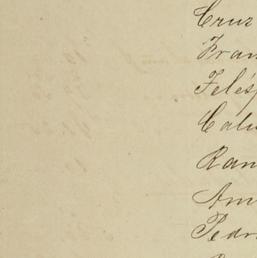 Cruz
Fran
Felésp
Calu
Ran
Am
Pedr